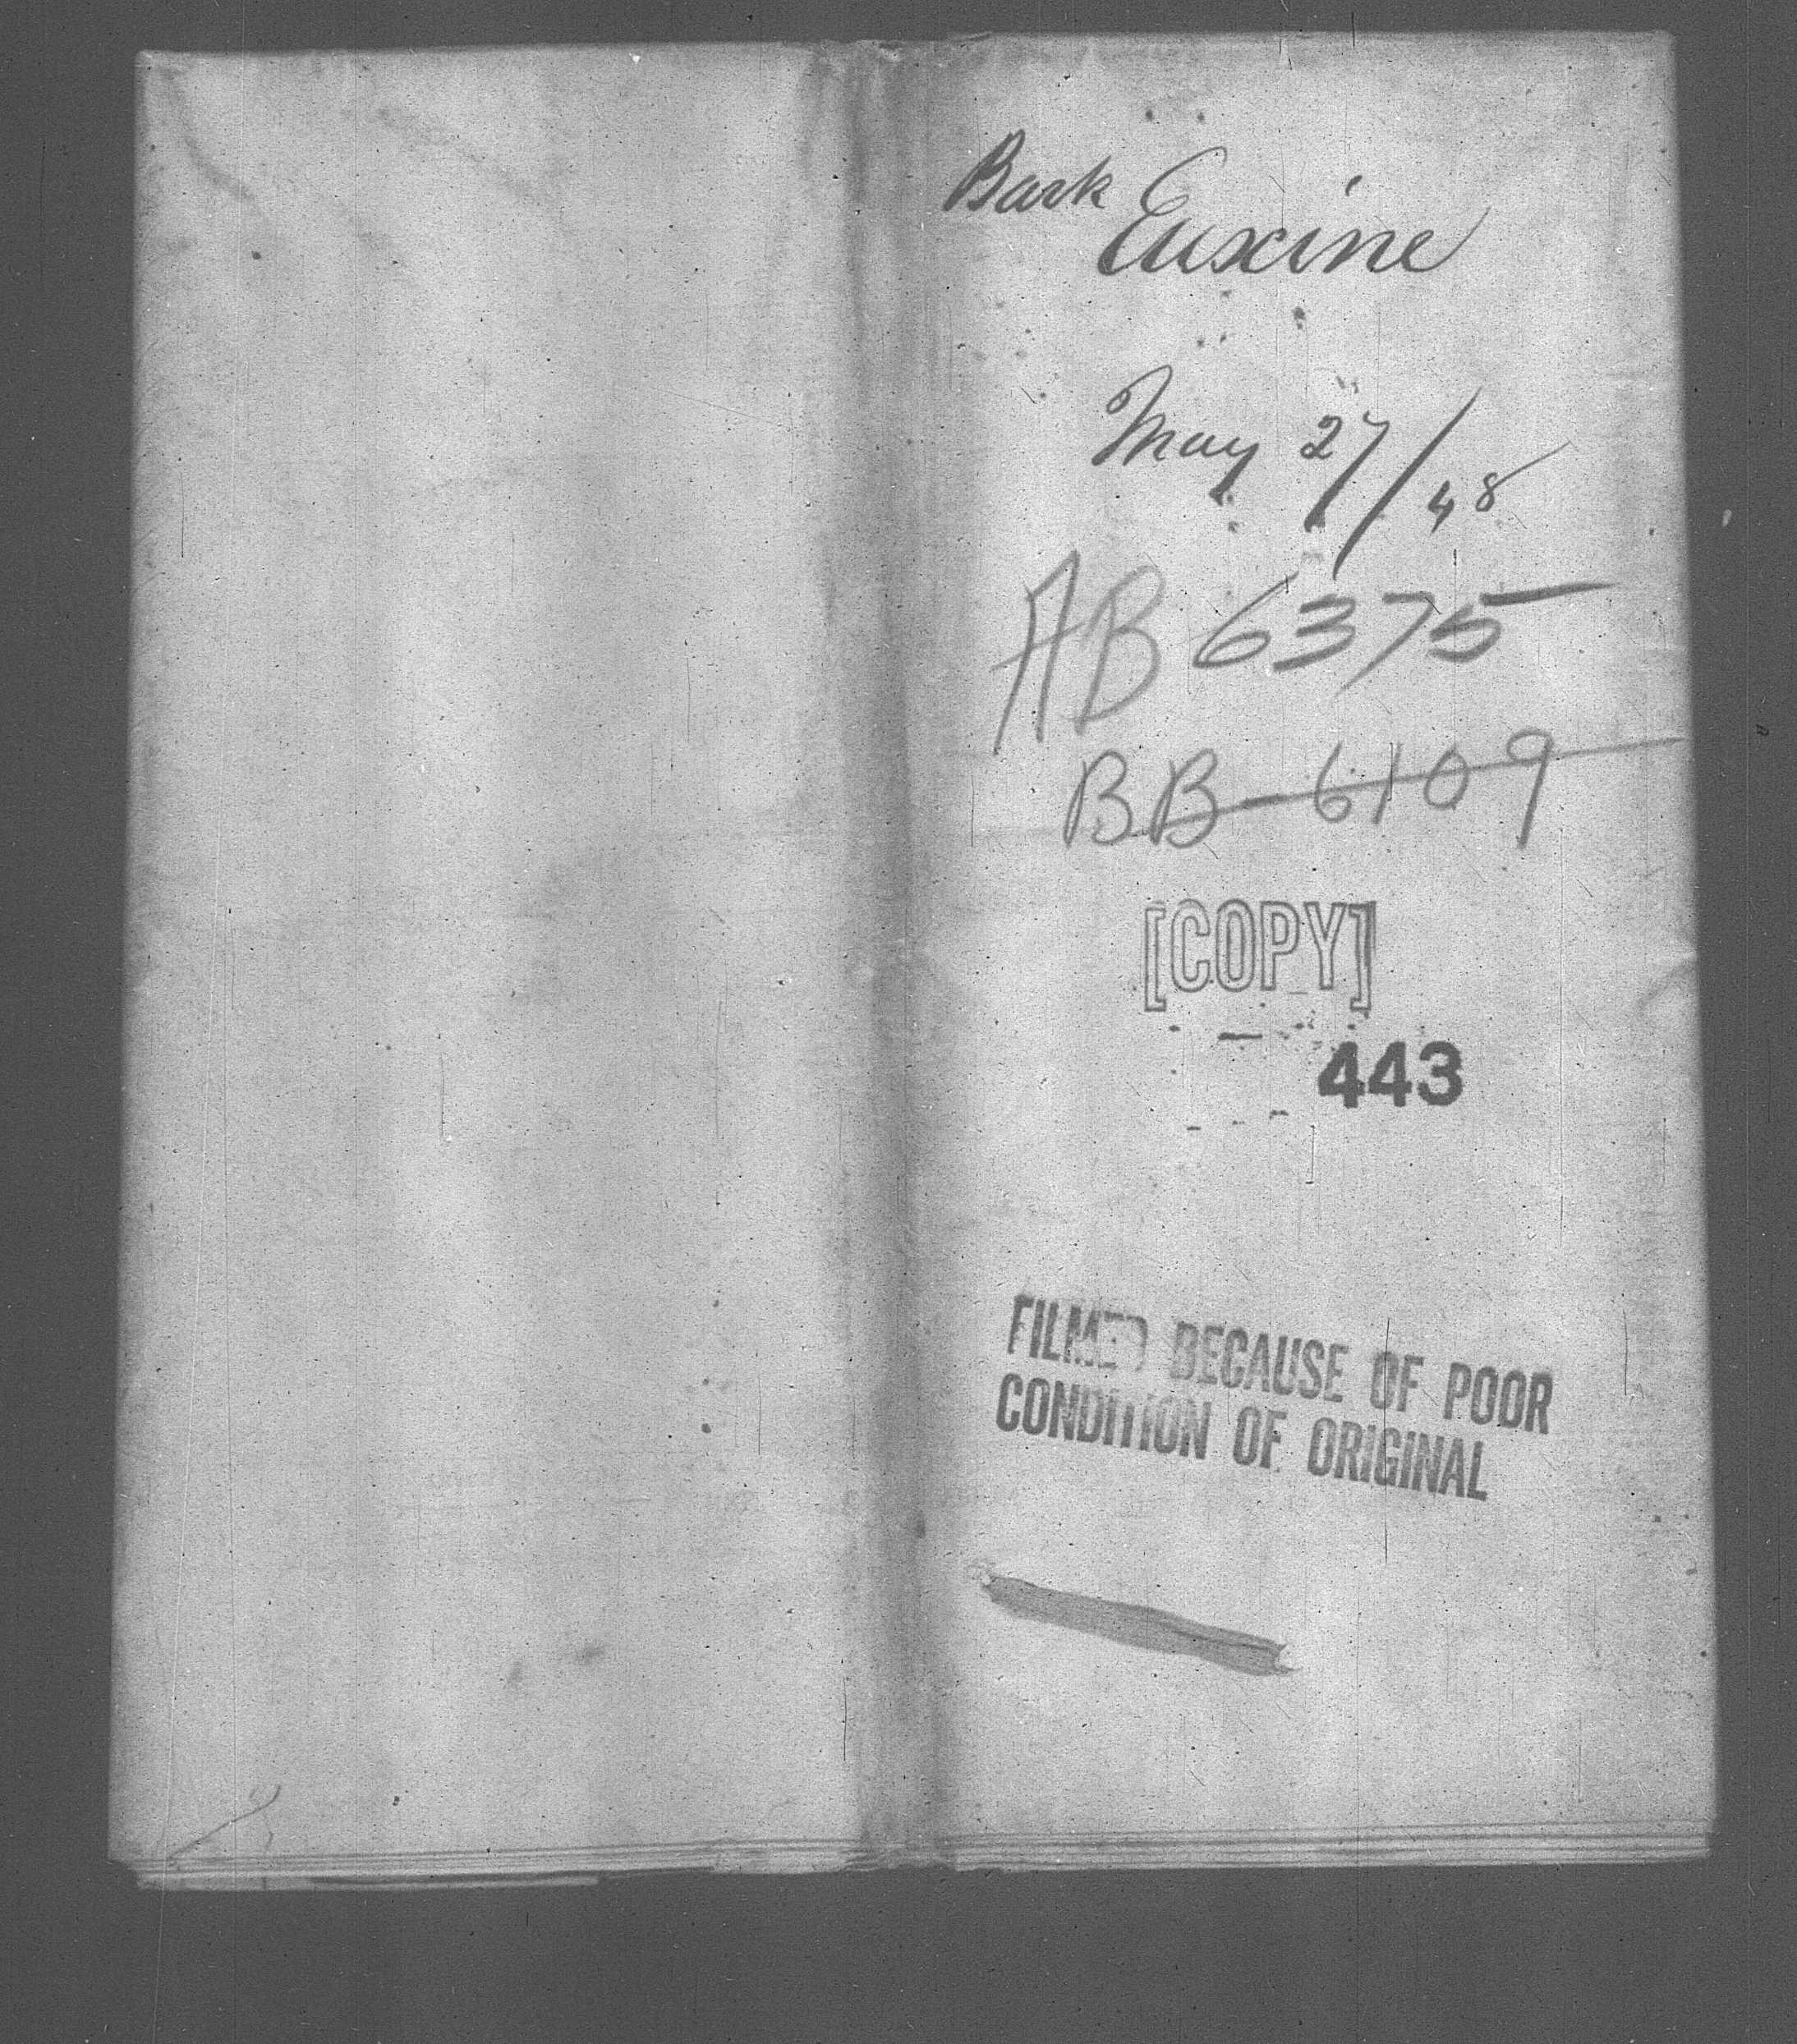 Bark
Euxine
May 27/48
AB 6375
BB 6109
[COPY]
443
FILMED BECAUSE OF POOR
CONDITION OF ORIGINAL